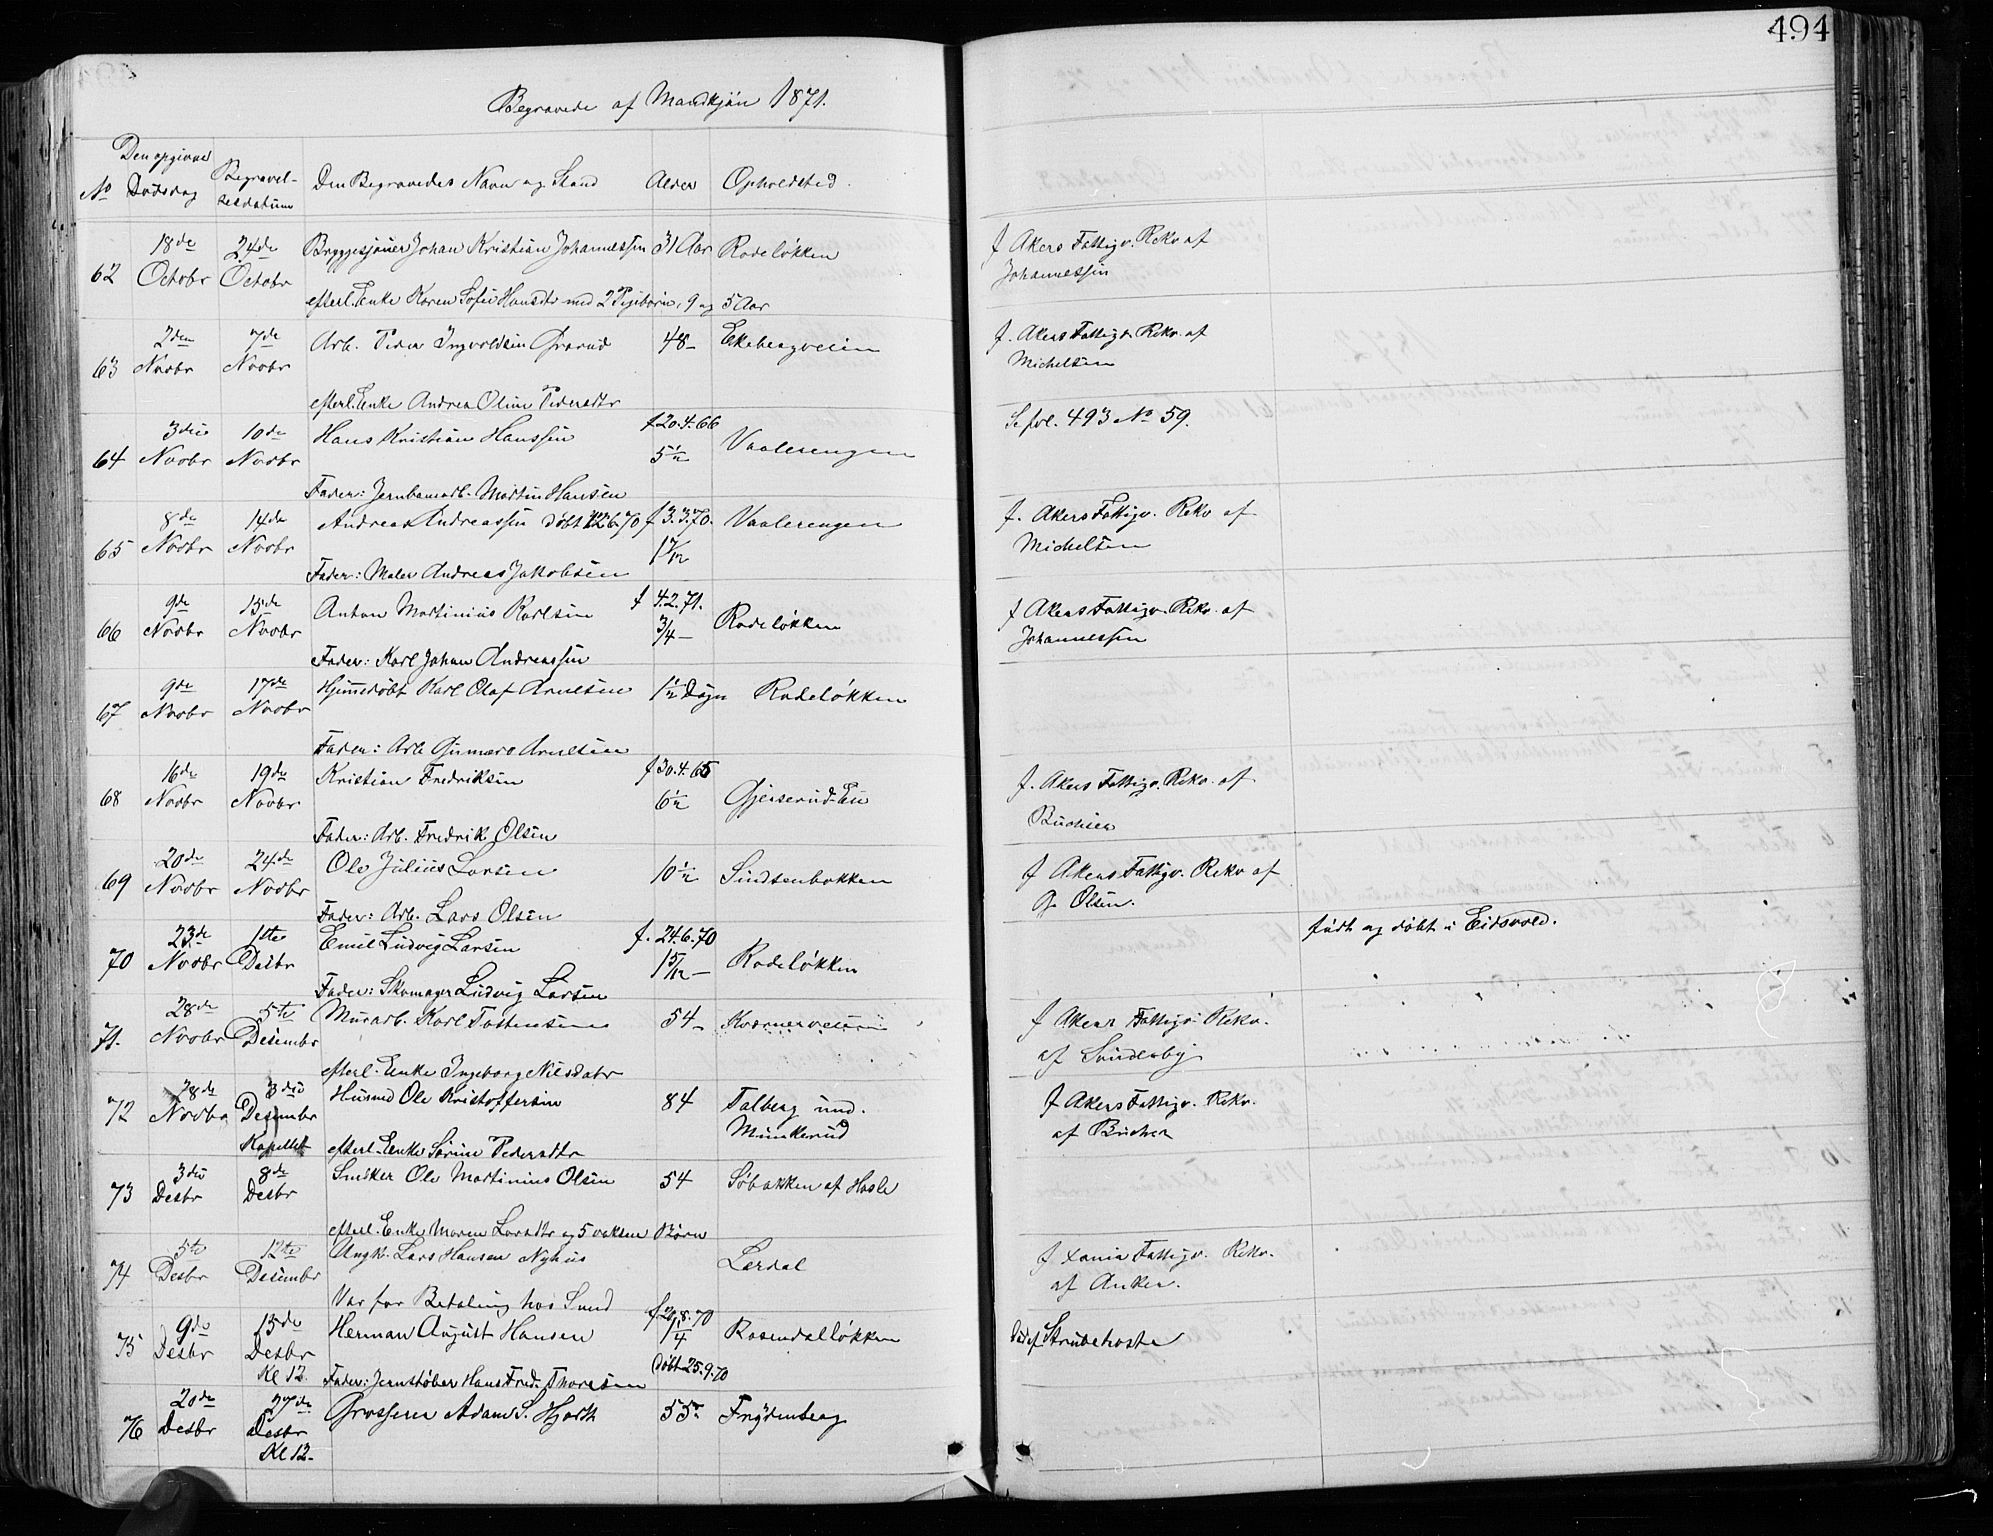 494
Begravede af Mandkjøn 1871.
No Den opgivne Dødsdag Begravel-sesdatum Den Begravedes Navn og Stand Alder Opholdsted.
62 18de Octobr 24de Octobr Bryggesjouer Johan Kristian Johannessen 31 Aar Rodeløkken f Akers Fattigv. Rekv af Johannessen
efterl. Enke Karen Sofie Hansdtr med 2 Pigebørn, 9 og 5 Aar
63 2den Novbr 7de Novbr Arb. Peder Ingvoldsen Grorud 48 – Ekebergveien f. Akers Fattigv Rekv. af Michelsen
efterl. Enke Andrea Oline Pedersdtr
64 3die Novbr 10de Novbr Hans Kristian Hanssen f 20.4.66 5 1/2 Vaalerengen Se fol. 493 No 59.
Fader: Jernbanearb. Martin Hansen
65 8de Novbr 14de Novbr Andreas Andreassen døbt 12.6.70 f 3.3.70. 1 7/12 Vaalerengen f. Akers Fattigv. Rekv af Michelsen
Fader: Maler Andreas Jakobsen
66 9de Novbr 13de Novbr Anton Martinius Karlsen f 4.2.71. 3/4 – Rodeløkken f Akers Fattigv. Rekv. af Johannessen
Fader: Karl Johan Andreassen
67 9de Novbr 17de Novbr Hjemmedøbt Karl Olaf Arnesen 1 1/2 Døgn Rodeløkken
Fader: Arb Gunnero Arnesen
68 16de Novbr 19de Novbr Kristian Fredriksen f 30.4.65 6 1/2 Gjerserud-Eie f. Akers Fattigv. Rekv. af Bucher
Fader: Arb. Fredrik Olsen
69 20de Novbr 24de Novbr Ole Julius Larsen 10 1/2 Sindsenbakken f Akers Fattigv. Rekv af G. Olsen.
Fader: Arb. Lars Olsen
70 23de Novbr 1ste Desbr Emil Ludvig Larsen f. 24.6.70 1 5/12 – Rodeløkken født og døbt i Eidsvold.
Fader: Skomager Ludvig Larsen
71. 28de Novbr 5te Desembr Murarb. Karl Tostensen 54 – Kværnerveien f Akers Fattigv. Rekv. af Svindeby
efterl. Enke Ingeborg Nilsdatr
72 28de Novbr 3die Desembr Kapellet Husmd Ole Kristoffersen 84 Talberg und. Munkerud f Akers Fattigv. Rekv. af Bucher
efterl. Enke Sørine Pedersdtr
73 3die Desbr 8de Desbr Snedker Ole Martinius Olsen 54 Søbakken af Hasle
efterl. Enke Maren Larsdtr og 5 voksne Børn
74 5te Desbr 12te Desembr Ungk. Lars Hansen Nyhus Lerdal f Xania Fattigv. Rekv. af Anker.
Var for Betaling hos Smed
75 9de Desbr 13de Desbr Kl 12. Herman August Hansen 1 1/4 døbt 25.9.70 Rosendalløkken Død af Strubehoste
Fader: Jernstøber Hans Fred. Thoresen
76 20de Desbr 27de Desbr Kl 12 – Grosserer Adam S. Hjorth 55 Frydenberg